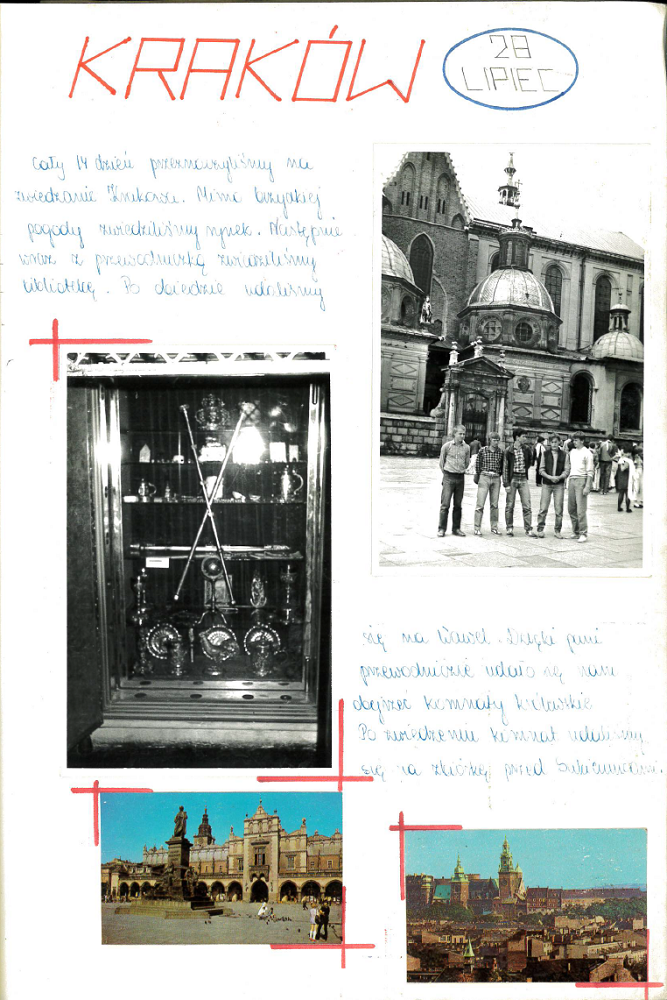 KRAKÓW
28
LIPIEC
Cały 14 dzień przeznaczyliśmy na
zwiedzanie Krakowa. Mimo brzydkiej
pogody zwiedziliśmy rynek. Następnie
wraz z przewodniczką zwiedziliśmy
bibliotekę. Po obiedzie udaliśmy
się na Wawel. Dzięki pani
przewodniczce udało się nam
obejrzeć komnaty królewskie
Po zwiedzeniu komnat udaliśmy
się na zbiórkę przed Sukiennicami.